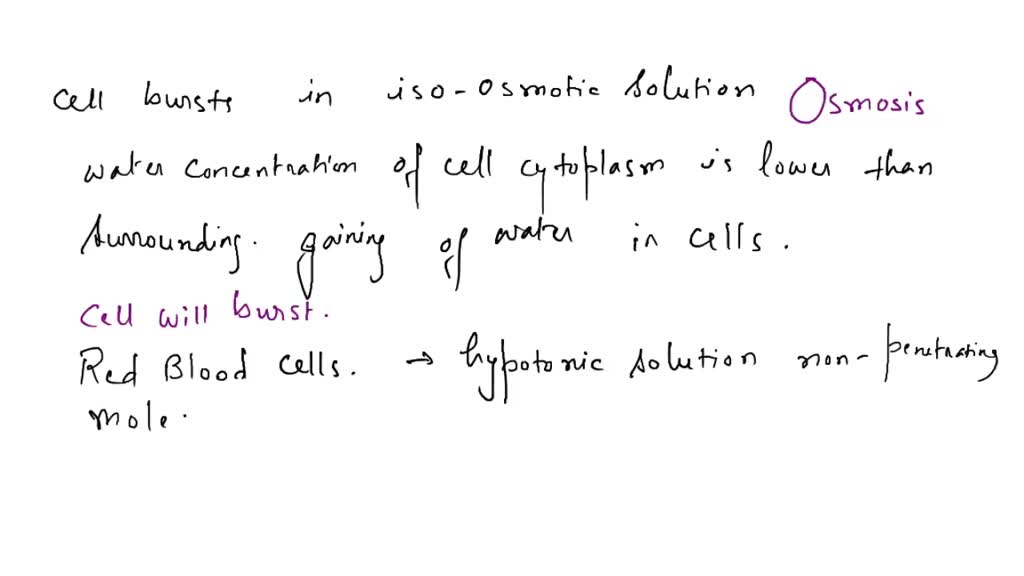 cell bursts in iso-osmotic solution Osmosis
water concentration of cell cytoplasm is lower than
surrounding. gaining of water in cells.
cell will burst.
Red Blood cells. → hypotonic solution non-penetrating
mole.